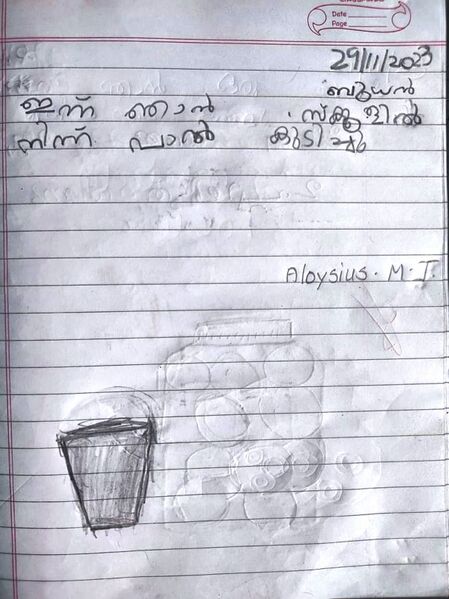 Date
Page
29/11/2023
ബുധൻ
ഇന്ന് ഞാൻ സ്കൂളിൽ
നിന്ന് പാൽ കുടിച്ചു
Aloysius. M. J.